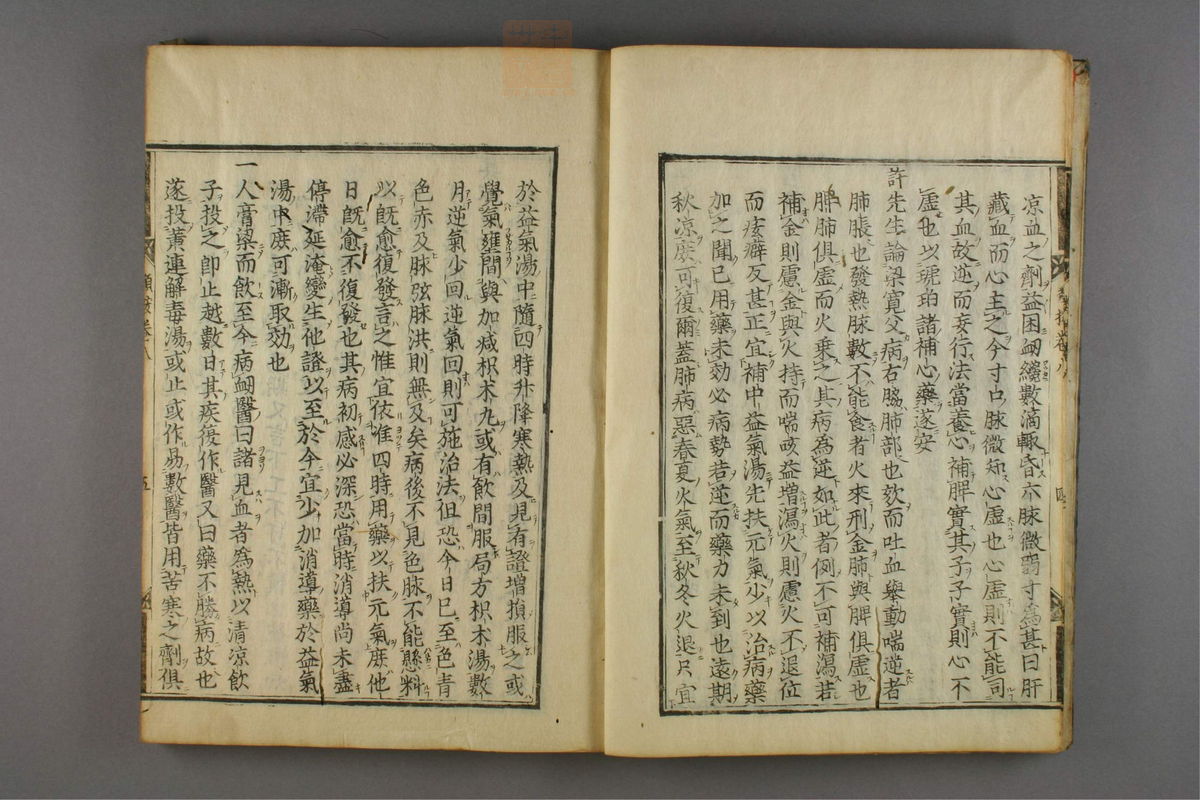 涼血之劑益困衂纔數滴輙昏六脉微弱寸爲甚曰肝
藏血而心主之今寸口脉微知心虛也心虛則不能司
其血故逆而妄行法當養心補脾實其子子實則心不
虛也以琥珀諸補心藥遂安
許先生論梁寬父病右脇肺部也欬而吐血舉動喘逆者
肺脹也發熱脉數不能食者火來刑金肺與脾俱虛也
脾肺俱虛而火乗之其病為逆如此者例不可補瀉若
補金則慮金與火持而喘咳益増瀉火則慮火不退位
而痃癖反甚正宜補中益氣湯先扶元氣少以治病藥
加之聞已用藥未効必病勢若逆而藥力未到也遠期
秋凉庶可復爾蓋肺病惡春夏火氣至秋冬火退只宜
於益氣湯中隨四時升降寒熱及見有證増損服之或
覺氣壅間與加減枳木丸或有飲間服局方枳木湯數
月逆氣少回逆氣回則可施治法但恐今日已至色青
色赤及脉弦脉洪則無及矣病後不見色脉不能懸料
以既愈復發言之惟宜依准四時用藥以扶元氣庶他
日既愈不復發也其病初感必深恐當時消導尚未盡
停滯延淹變生他證以至於今宜少加消導藥於益氣
湯中庶可漸取効也
一人膏粱而飲至今病衂醫曰諸見血者為熱以清涼飲
子投之即止越數日其疾復作醫又曰藥不勝病故也
遂投黄連解毒湯或止或作易數醫皆用苦寒之劑俱